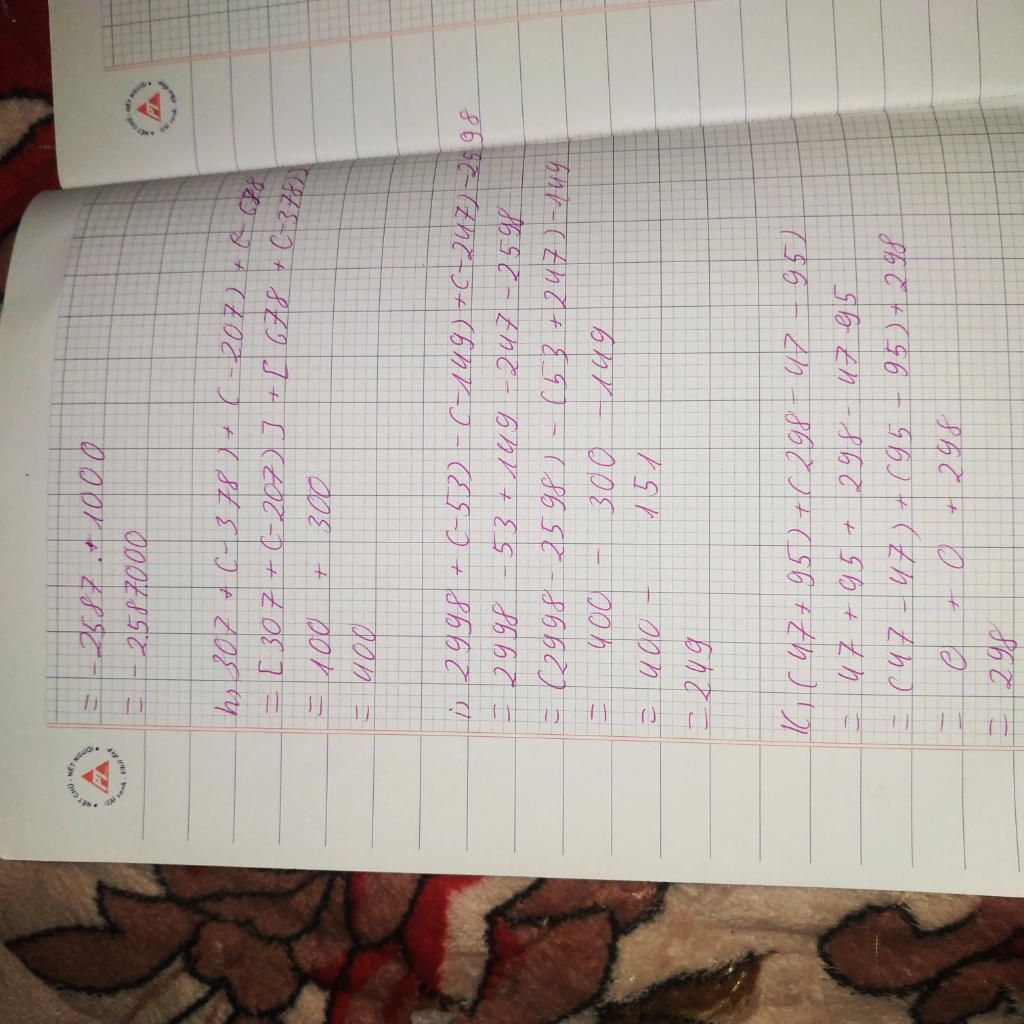 = -2587 . +1000
= - 2587000
h, 307 + (-378) + (-207) + (- 678
= [307 + (-207)] + [678 + (-378)]
= 100 + 300
= 400
i) 2998 + (-53) - (-149) + (-247) - 2598
= 2998 - 53 + 149 - 247 - 2598
= (2998 - 2598) - (53 + 247) - 149
= 400 - 300 - 149
= 400 - 151
= 249
K, (47 + 95) + (298 - 47 - 95)
= 47 + 95 + 298 - 47 - 95
= (47 - 47) + (95 - 95) + 298
= 0 + 0 + 298
= 298
NÉT CHỮ - NẾT NGƯỜI
PT
NÉT CHỮ - NẾT NGƯỜI
PT